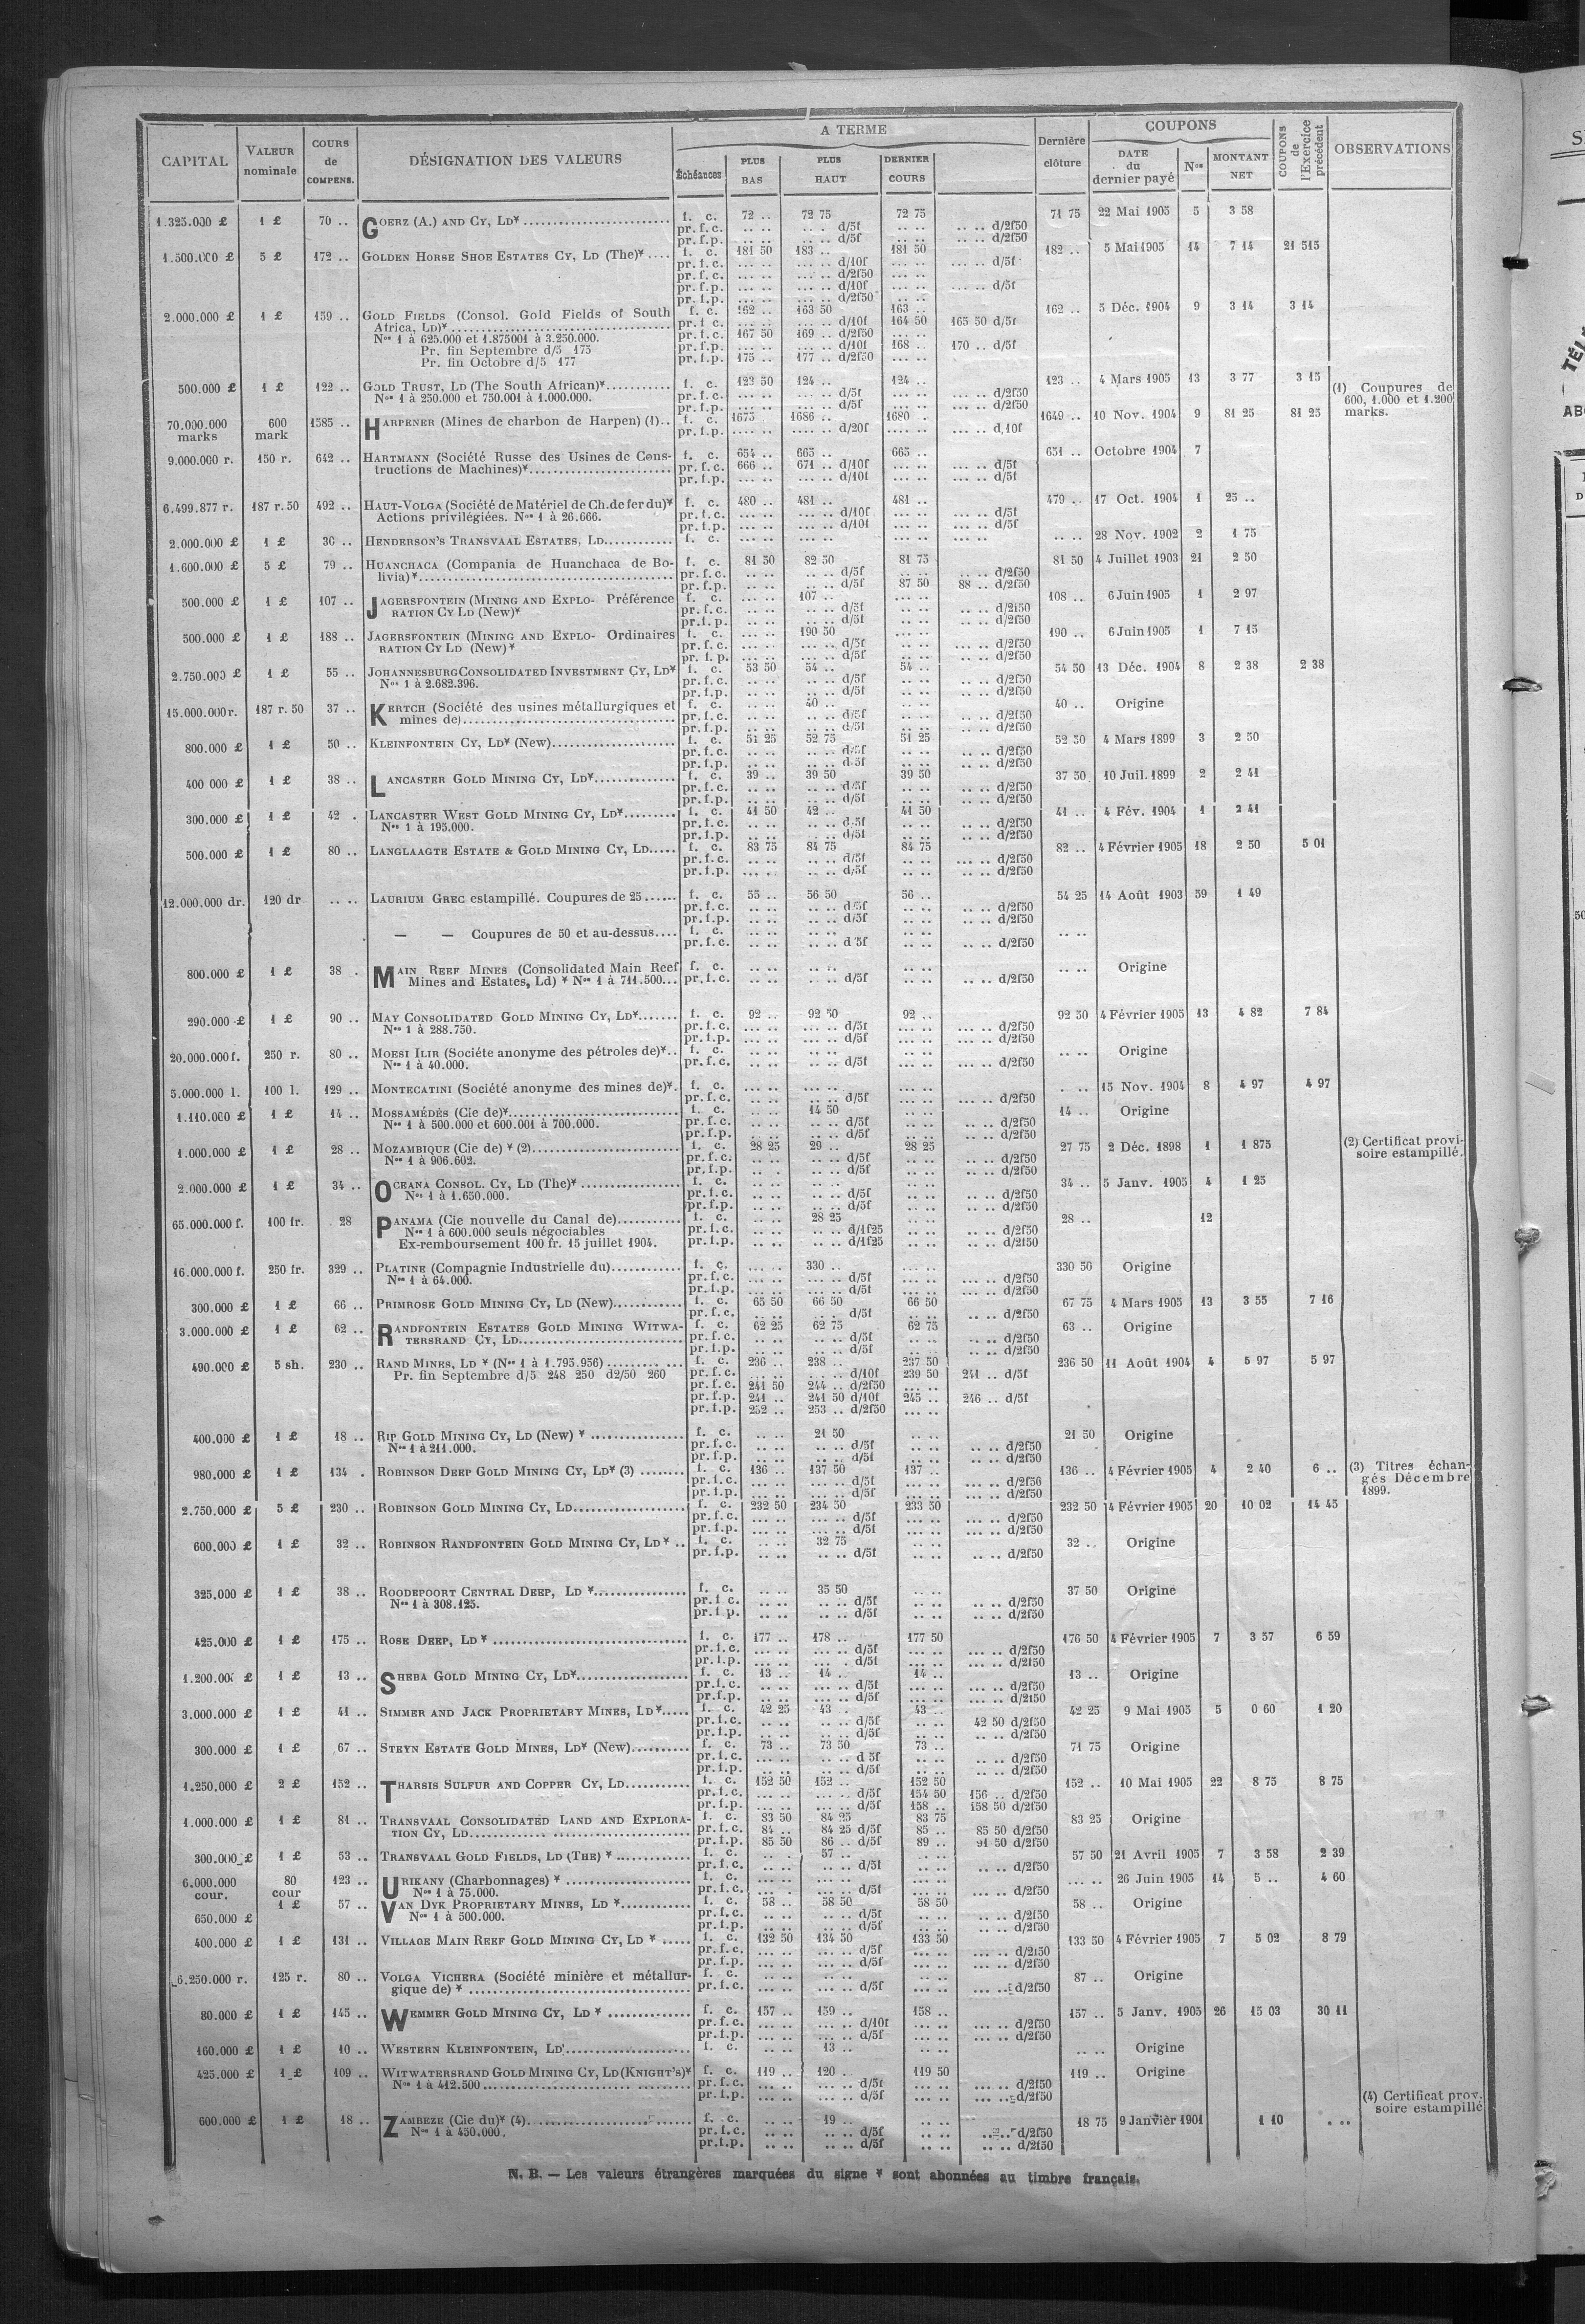 CAPITAL
VALEUR nominale
COURS de COMPENS.
DÉSIGNATION DES VALEURS
A TERME
Échéances
PLUS BAS
PLUS HAUT
DERNIER COURS
Dernière clôture
COUPONS
DATE du dernier payé
Nos
MONTANT NET
COUPONS de l'Exercice précédent
OBSERVATIONS
1.325.000 £ 1 £ 70 .. GOERZ (A.) AND CY, LD* f. c. 72 .. 72 75 72 75 71 75 22 Mai 1905 5 3 58
pr. f. c. .. .. .. .. d/5f .. .. .. .. d/2f50
pr. f. p. .. .. .. .. d/5f .. .. .. .. d/2f50
1.500.000 £ 5 £ 172 .. GOLDEN HORSE SHOE ESTATES CY, LD (The)* f. c. 181 50 183 .. 181 50 182 .. 5 Mai 1905 14 7 14 21 515
pr. f. c. ... .. ... .. d/10f ... .. ... .. d/5f
pr. f. c. ... .. ... .. d/2f50 ... ..
pr. f. p. ... .. ... .. d/10f ... .. ... .. d/5f
pr. f. p. ... .. ... .. d/2f50 ... ..
2.000.000 £ 1 £ 159 .. GOLD FIELDS (Consol. Gold Fields of South f. c. 162 .. 163 50 163 .. 162 .. 5 Déc. 1904 9 3 14 3 14
Africa, LD)* pr. f. c. ... .. ... .. d/10f 164 50 165 50 d/5f
Nos 1 à 625.000 et 1.875001 à 3.250.000. pr. f. c. 167 50 169 .. d/2f50 ... ..
Pr. fin Septembre d/5 175 pr. f. p. ... .. ... .. d/10f 168 .. 170 .. d/5f
Pr. fin Octobre d/5 177 pr. f. p. 175 .. 177 .. d/2f50 ... ..
500.000 £ 1 £ 122 .. GOLD TRUST, LD (The South African)* f. c. 123 50 124 .. 124 .. 123 .. 4 Mars 1905 13 3 77 3 15 (1) Coupures de
Nos 1 à 250.000 et 750.001 à 1.000.000. pr. f. c. ... .. ... .. d/5f ... .. ... .. d/2f50 600, 1.000 et 1.200
pr. f. p. ... .. ... .. d/5f ... .. ... .. d/2f50 marks.
70.000.000 marks 600 mark 1585 .. HARPENER (Mines de charbon de Harpen) (1).. f. c. 1675 1686 .. 1680 .. 1649 .. 10 Nov. 1904 9 81 25 81 25
pr. f. p. .... .. .... .. d/20f .... .. d.10f
9.000.000 r. 150 r. 642 .. HARTMANN (Société Russe des Usines de Cons- f. c. 654 .. 665 .. 665 .. 651 .. Octobre 1904 7
tructions de Machines)* pr. f. c. 666 .. 671 .. d/10f ... .. ... .. d/5f
pr. f. p. ... .. ... .. d/10f ... .. ... .. d/5f
6.499.877 r. 187 r. 50 492 .. HAUT-VOLGA (Société de Matériel de Ch. de fer du)* f. c. 480 .. 481 .. 481 .. 479 .. 17 Oct. 1904 1 25 ..
Actions privilégiées. Nos 1 à 26.666. pr. f. c. ... .. ... .. d/10f ... .. ... .. d/5f
pr. f. p. ... .. ... .. d/10f ... .. ... .. d/5f
2.000.000 £ 1 £ 30 .. HENDERSON'S TRANSVAAL ESTATES, LD f. c. .. .. 28 Nov. 1902 2 1 75
1.600.000 £ 5 £ 79 .. HUANCHACA (Compania de Huanchaca de Bo- f. c. 81 50 82 50 81 75 81 50 4 Juillet 1903 21 2 50
livia)* pr. f. c. .. .. .. .. d/5f .. .. .. .. d/2f50
pr. f. p. .. .. .. .. d/5f 87 50 88 .. d/2f50
500.000 £ 1 £ 107 .. JAGERSFONTEIN (MINING AND EXPLO- Préférence f. c. ... .. 107 .. ... .. 108 .. 6 Juin 1905 1 2 97
RATION CY LD (New)* pr. f. c. .. .. .. .. d/5f .. .. .. .. d/2f50
pr. f. p. .. .. .. .. d/5f .. .. .. .. d/2f50
500.000 £ 1 £ 188 .. JAGERSFONTEIN (MINING AND EXPLO- Ordinaires f. c. ... .. 190 50 ... .. 190 .. 6 Juin 1905 1 7 15
RATION CY LD (New)* pr. f. c. ... .. ... .. d/5f ... .. ... .. d/2f50
pr. f. p. ... .. ... .. d/5f ... .. ... .. d/2f50
2.750.000 £ 1 £ 55 .. JOHANNESBURG CONSOLIDATED INVESTMENT CY, LD* f. c. 53 50 54 .. 54 .. 54 50 13 Déc. 1904 8 2 38 2 38
Nos 1 à 2.682.396. pr. f. c. .. .. .. .. d/5f .. .. .. .. d/2f50
pr. f. p. .. .. .. .. d/5f .. .. .. .. d/2f50
15.000.000 r. 187 r. 50 37 .. KERTCH (Société des usines métallurgiques et f. c. .. .. 40 .. .. .. 40 .. Origine
mines de) pr. f. c. .. .. .. .. d/5f .. .. .. .. d/2f50
pr. f. p. .. .. .. .. d/5f .. .. .. .. d/2f50
800.000 £ 1 £ 50 .. KLEINFONTEIN CY, LD* (New) f. c. 51 25 52 75 51 25 52 50 4 Mars 1899 3 2 50
pr. f. c. .. .. .. .. d/5f .. .. .. .. d/2f50
pr. f. p. .. .. .. .. d/5f .. .. .. .. d/2f50
400 000 £ 1 £ 38 .. LANCASTER GOLD MINING CY, LD* f. c. 39 .. 39 50 39 50 37 50 10 Juil. 1899 2 2 41
pr. f. c. .. .. .. .. d/5f .. .. .. .. d/2f50
pr. f. p. .. .. .. .. d/5f .. .. .. .. d/2f50
300.000 £ 1 £ 42 . LANCASTER WEST GOLD MINING CY, LD* f. c. 41 50 42 .. 41 50 41 .. 4 Fév. 1904 1 2 41
Nos 1 à 195.000. pr. f. c. .. .. .. .. d/5f .. .. .. .. d/2f50
pr. f. p. .. .. .. .. d/5f .. .. .. .. d/2f50
500.000 £ 1 £ 80 .. LANGLAAGTE ESTATE & GOLD MINING CY, LD f. c. 83 75 84 75 84 75 82 .. 4 Février 1905 18 2 50 5 01
pr. f. c. .. .. .. .. d/5f .. .. ... .. d/2f50
pr. f. p. .. .. .. .. d/5f .. .. ... .. d/2f50
12.000.000 dr. 120 dr .. .. LAURIUM GREC estampillé. Coupures de 25 f. c. 55 .. 56 50 56 .. 54 25 14 Août 1903 59 1 49
pr. f. c. .. .. .. .. d/5f .. .. .. .. d/2f50
pr. f. p. .. .. .. .. d/5f .. .. .. .. d/2f50
— — Coupures de 50 et au-dessus f. c. .. .. .. .. .. .. .. ..
pr. f. c. .. .. .. .. d/5f .. .. .. .. d/2f50
800.000 £ 1 £ 38 . MAIN REEF MINES (Consolidated Main Reef f. c. .. .. .. .. .. .. .. .. Origine
Mines and Estates, Ld) * Nos 1 à 711.500... pr. f. c. .. .. .. .. d/5f .. .. .. .. d/2f50
290.000 £ 1 £ 90 .. MAY CONSOLIDATED GOLD MINING CY, LD* f. c. 92 .. 92 50 92 .. 92 50 4 Février 1905 13 4 82 7 84
Nos 1 à 288.750. pr. f. c. ... .. ... .. d/5f ... .. ... .. d/2f50
pr. f. p. ... .. ... .. d/5f ... .. ... .. d/2f50
20.000.000 f. 250 r. 80 .. MOESI ILIR (Sociéte anonyme des pétroles de)*.. f. c. .. .. .. .. .. .. .. .. Origine
Nos 1 à 40.000. pr. f. c. .. .. .. .. d/5f .. .. .. .. d/2f50
5.000.000 l. 100 l. 129 .. MONTECATINI (Société anonyme des mines de)*. f. c. ... .. ... .. ... .. . .. 15 Nov. 1904 8 4 97 4 97
pr. f. c. ... .. ... .. d/5f ... .. ... .. d/2f50
1.110.000 £ 1 £ 14 .. MOSSAMÉDÈS (Cie de)* f. c. .. .. 14 50 .. .. 14 .. Origine
Nos 1 à 500.000 et 600.001 à 700.000. pr. f. c. .. .. .. .. d/5f .. .. .. .. d/2f50
pr. f. p. .. .. .. .. d/5f .. .. .. .. d/2f50
1.000.000 £ 1 £ 28 .. MOZAMBIQUE (Cie de) * (2) f. c. 28 25 29 .. 28 25 27 75 2 Déc. 1898 1 1 875 (2) Certificat provi-
Nos 1 à 906.602. pr. f. c. .. .. .. .. d/5f .. .. .. .. d/2f50 soire estampillé.
pr. f. p. .. .. .. .. d/5f .. .. .. .. d/2f50
2.000.000 £ 1 £ 34 .. OCEANA CONSOL. CY, LD (The)* f. c. .. .. .. .. .. .. 34 .. 5 Janv. 1905 4 1 25
Nos 1 à 1.650.000. pr. f. c. .. .. .. .. d/5f .. .. .. .. d/2f50
pr. f. p. .. .. .. .. d/5f .. .. .. .. d/2f50
65.000.000 f. 100 fr. 28 PANAMA (Cie nouvelle du Canal de) f. c. .. .. 28 25 .. .. 28 .. 12
Nos 1 à 600.000 seuls négociables pr. f. c. .. .. .. .. d/1f25 .. .. .. .. d/2f50
Ex-remboursement 100 fr. 15 juillet 1904. pr. f. p. .. .. .. .. d/1f25 .. .. .. .. d/2f50
16.000.000 f. 250 fr. 329 .. PLATINE (Compagnie Industrielle du) f. c. ... .. 330 .. ... .. 330 50 Origine
Nos 1 à 64.000. pr. f. c. ... .. ... .. d/5f ... .. ... .. d/2f50
pr. f. p. ... .. ... .. d/5f ... .. ... .. d/2f50
300.000 £ 1 £ 66 .. PRIMROSE GOLD MINING CY, LD (New) f. c. 65 50 66 50 66 50 67 75 4 Mars 1905 13 3 55 7 16
pr. f. c. .. .. .. .. d/5f .. .. .. .. d/2f50
3.000.000 £ 1 £ 62 .. RANDFONTEIN ESTATES GOLD MINING WITWA- f. c. 62 25 62 75 62 75 63 .. Origine
TERSRAND CY, LD pr. f. c. .. .. .. .. d/5f .. .. .. .. d/2f50
pr. f. p. .. .. .. .. d/5f .. .. .. .. d/2f50
490.000 £ 5 sh. 230 .. RAND MINES, LD * (Nos 1 à 1.795.956) f. c. 236 .. 238 .. 237 50 236 50 11 Août 1904 4 5 97 5 97
Pr. fin Septembre d/5 248 250 d2/50 260 pr. f. c. ... .. ... .. d/10f 239 50 241 .. d/5f
pr. f. c. 241 50 244 .. d/2f50 ... ..
pr. f. p. 241 .. 241 50 d/10f 245 .. 246 .. d/5f
pr. f. p. 252 .. 253 .. d/2f50 ... ..
400.000 £ 1 £ 18 .. RIP GOLD MINING CY, LD (New) * f. c. .. .. 21 50 .. .. 21 50 Origine
Nos 1 à 211.000. pr. f. c. .. .. .. .. d/5f .. .. .. .. d/2f50
pr. f. p. .. .. .. .. d/5f .. .. .. .. d/2f50
980.000 £ 1 £ 134 . ROBINSON DEEP GOLD MINING CY, LD* (3) f. c. 136 .. 137 50 137 .. 136 .. 4 Février 1905 4 2 40 6 .. (3) Titres échan-
pr. f. c. ... .. ... .. d/5f ... .. ... .. d/2f50 gés Décembre
pr. f. p. ... .. ... .. d/5f ... .. ... .. d/2f50 1899.
2.750.000 £ 5 £ 230 .. ROBINSON GOLD MINING CY, LD f. c. 232 50 234 50 233 50 232 50 4 Février 1905 20 10 02 14 45
pr. f. c. ... .. ... .. d/5f ... .. ... .. d/2f50
pr. f. p. ... .. ... .. d/5f ... .. ... .. d/2f50
600.000 £ 1 £ 32 .. ROBINSON RANDFONTEIN GOLD MINING CY, LD * .. f. c. .. .. 32 75 .. .. 32 .. Origine
pr. f. p. .. .. .. .. d/5f .. .. .. .. d/2f50
325.000 £ 1 £ 38 .. ROODEPOORT CENTRAL DEEP, LD * f. c. .. .. 35 50 .. .. 37 50 Origine
Nos 1 à 308.125. pr. f. c. .. .. .. .. d/5f .. .. .. .. d/2f50
pr. f. p. .. .. .. .. d/5f .. .. .. .. d/2f50
425.000 £ 1 £ 175 .. ROSE DEEP, LD * f. c. 177 .. 178 .. 177 50 176 50 4 Février 1905 7 3 57 6 59
pr. f. c. ... .. ... .. d/5f ... .. ... .. d/2f50
pr. f. p. ... .. ... .. d/5f ... .. ... .. d/2f50
1.200.00 £ 1 £ 13 .. SHEBA GOLD MINING CY, LD* f. c. 13 .. 14 .. 14 .. 13 .. Origine
pr. f. c. .. .. .. .. d/5f .. .. .. .. d/2f50
pr. f. p. .. .. .. .. d/5f .. .. .. .. d/2f50
3.000.000 £ 1 £ 41 .. SIMMER AND JACK PROPRIETARY MINES, LD* f. c. 42 25 43 .. 43 .. 42 25 9 Mai 1905 5 0 60 1 20
pr. f. c. .. .. .. .. d/5f .. .. 42 50 d/2f50
pr. f. p. .. .. .. .. d/5f .. .. .. .. d/2f50
300.000 £ 1 £ 67 .. STEYN ESTATE GOLD MINES, LD* (New) f. c. 73 .. 73 50 73 .. 71 75 Origine
pr. f. c. .. .. .. .. d 5f .. .. .. .. d/2f50
pr. f. p. .. .. .. .. d/5f .. .. .. .. d/2f50
1.250.000 £ 2 £ 152 .. THARSIS SULFUR AND COPPER CY, LD f. c. 152 50 152 .. 152 50 152 .. 10 Mai 1905 22 8 75 8 75
pr. f. c. ... .. ... .. d/5f 154 50 156 .. d/2f50
pr. f. p. ... .. ... .. d/5f 158 .. 158 50 d/2f50
1.000.000 £ 1 £ 81 .. TRANSVAAL CONSOLIDATED LAND AND EXPLORA- f. c. 83 50 84 25 83 75 83 25 Origine
TION CY, LD pr. f. c. 84 .. 84 25 d/5f 85 .. 85 50 d/2f50
pr. f. p. 85 50 86 .. d/5f 89 .. 91 50 d/2f50
300.000 £ 1 £ 53 .. TRANSVAAL GOLD FIELDS, LD (THE) * f. c. .. .. 57 .. .. .. 57 50 21 Avril 1905 7 3 58 2 39
pr. f. c. .. .. .. .. d/5f .. .. .. .. d/2f50
6.000.000 cour. 80 cour 123 .. URIKANY (Charbonnages) * f. c. ... .. 26 Juin 1905 14 5 .. 4 60
Nos 1 à 75.000. pr. f. c. ... .. ... .. d/5f ... .. ... .. d/2f50
650.000 £ 1 £ 57 .. VAN DYK PROPRIETARY MINES, LD * f. c. 58 .. 58 50 58 50 58 .. Origine
Nos 1 à 500.000. pr. f. c. .. .. .. .. d/5f .. .. .. .. d/2f50
pr. f. p. .. .. .. .. d/5f .. .. .. .. d/2f50
400.000 £ 1 £ 131 .. VILLAGE MAIN REEF GOLD MINING CY, LD * f. c. 132 50 134 50 133 50 133 50 4 Février 1905 7 5 02 8 79
pr. f. c. ... .. ... .. d/5f ... .. ... .. d/2f50
pr. f. p. ... .. ... .. d/5f ... .. ... .. d/2f50
6.250.000 r. 125 r. 80 .. VOLGA VICHERA (Société minière et métallur- f. c. ... .. ... .. ... .. 87 .. Origine
gique de) * pr. f. c. ... .. ... .. d/5f ... .. ... .. d/2f50
80.000 £ 1 £ 145 .. WEMMER GOLD MINING CY, LD * f. c. 157 .. 159 .. 158 .. 157 .. 5 Janv. 1905 26 15 03 30 11
pr. f. c. ... .. ... .. d/10f ... .. ... .. d/2f50
pr. f. p. ... .. ... .. d/5f ... .. ... .. d/2f50
160.000 £ 1 £ 10 .. WESTERN KLEINFONTEIN, LD f. c. .. .. 13 .. .. .. .. .. Origine
425.000 £ 1 £ 109 .. WITWATERSRAND GOLD MINING CY, LD (KNIGHT'S)* f. c. 119 .. 120 .. 119 50 119 .. Origine
Nos 1 à 412.500 pr. f. c. ... .. ... .. d/5f ... .. ... .. d/2f50
pr. f. p. ... .. ... .. d/5f ... .. ... .. d/2f50 (4) Certificat prov.
soire estampillé
600.000 £ 1 £ 18 .. ZAMBEZE (Cie du)* (4) f. c. .. .. 19 .. .. .. 18 75 9 Janvier 1901 1 10 . ..
Nos 1 à 450.000. pr. f. c. .. .. .. .. d/5f .. .. .. .. d/2f50
pr. f. p. .. .. .. .. d/5f .. .. .. .. d/2f50
N. B. — Les valeurs étrangères marquées du signe * sont abonnées au timbre français.